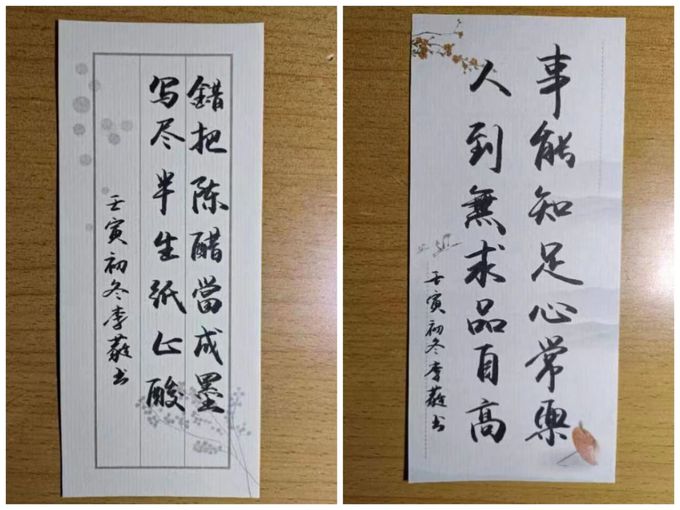 錯把陈醋當成墨
写尽半生纸上酸
壬寅初冬李书
事能知足心常樂
人到無求品自高
壬寅初冬李书